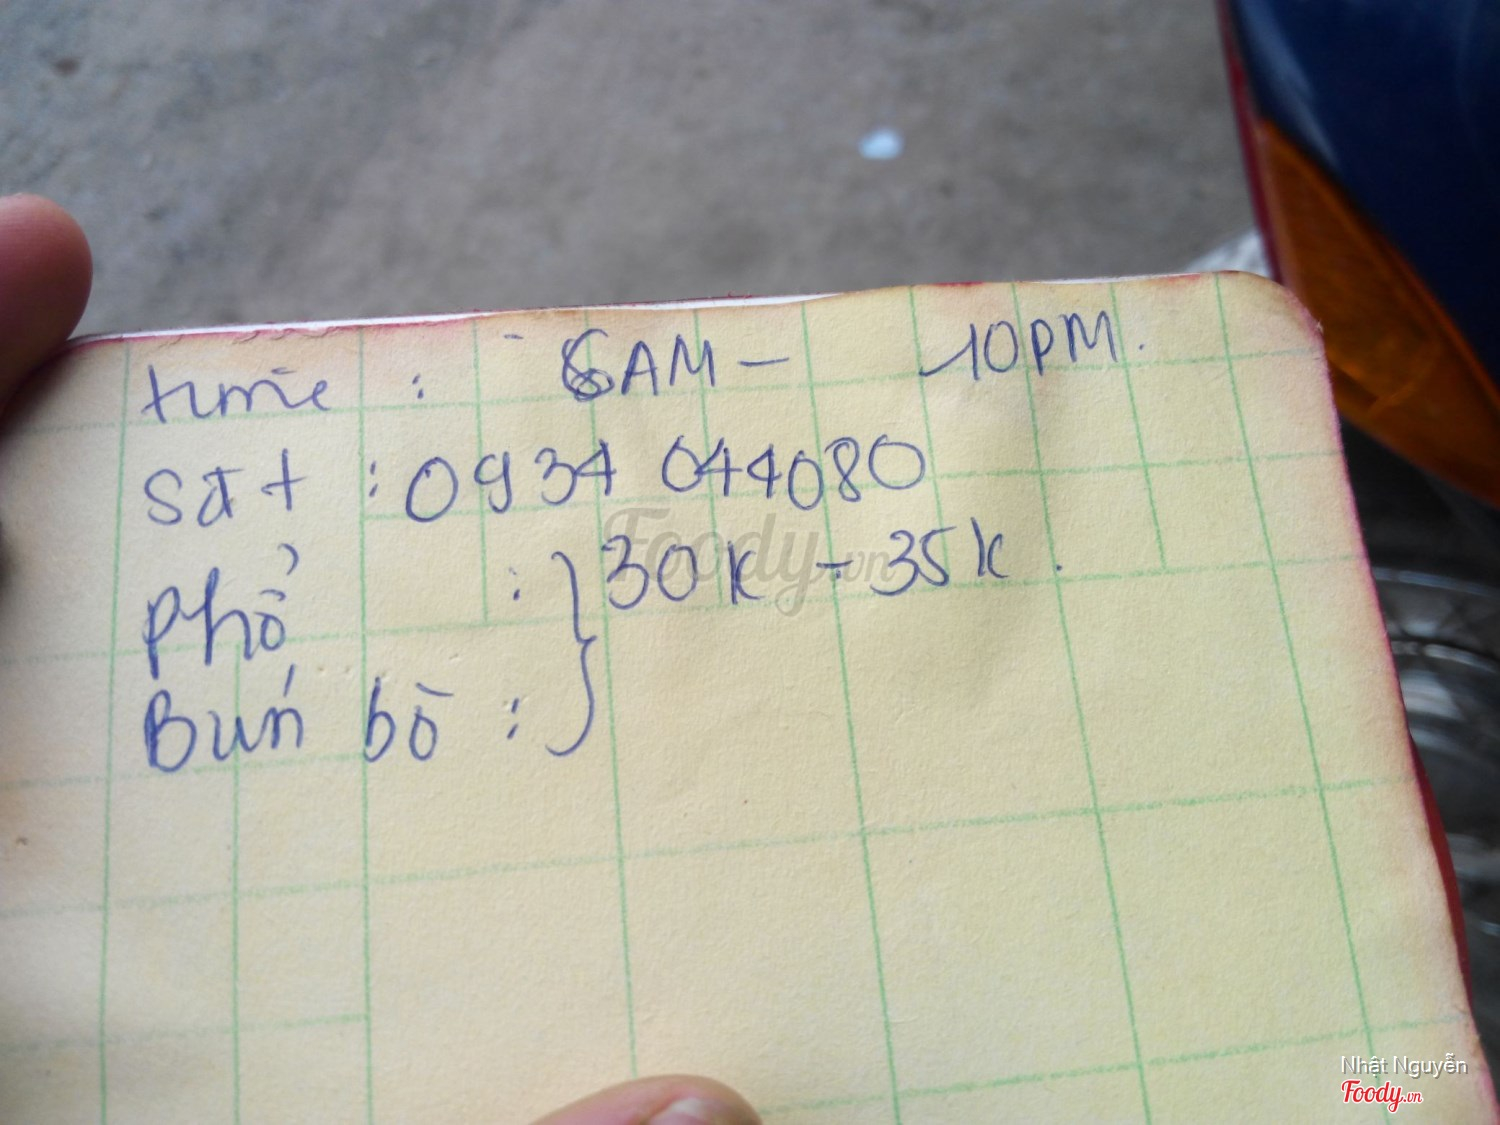 time : 6AM – 10PM.
sđt : 0934 044080
Phở : } 30k – 35k.
Bún bò :
Foody.vn
Nhật Nguyễn
Foody.vn